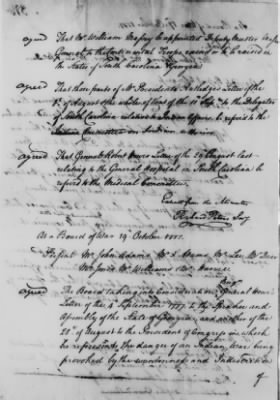 agreed That Mr William be appointed Deputy Muster
General to the Continental Troops raised or to be raised in
the States of South Carolina & Georgia
agreed That those parts of Mr President Rutledge's Letter of the
of August the whole of that of the 11 Sepr to the Delegates
of South Carolina relative to Indian Affairs be referred to the
Indian Committee
agreed That General Robt Howe's Letter of the 29 August last
relating to the General Hospital in South Carolina be
referred to the Medical Committee.
Extract from the Minutes
Richard Peters Secy
At a Board of War 19 October 1777.
Present Mr John Adams Mr S Adams Mr Lee Mr Duer
Mr Jones Mr Williams &
agreed The Board taking into Consideration Brigr General Howe's
Letter of the 4 September 1777 to the Speaker and
Assembly of the State of Georgia, and another of the
28th of August to the President of Congress in which
he represents the danger of an Indian War being
provoked by the wantonness and Indiscretion
of